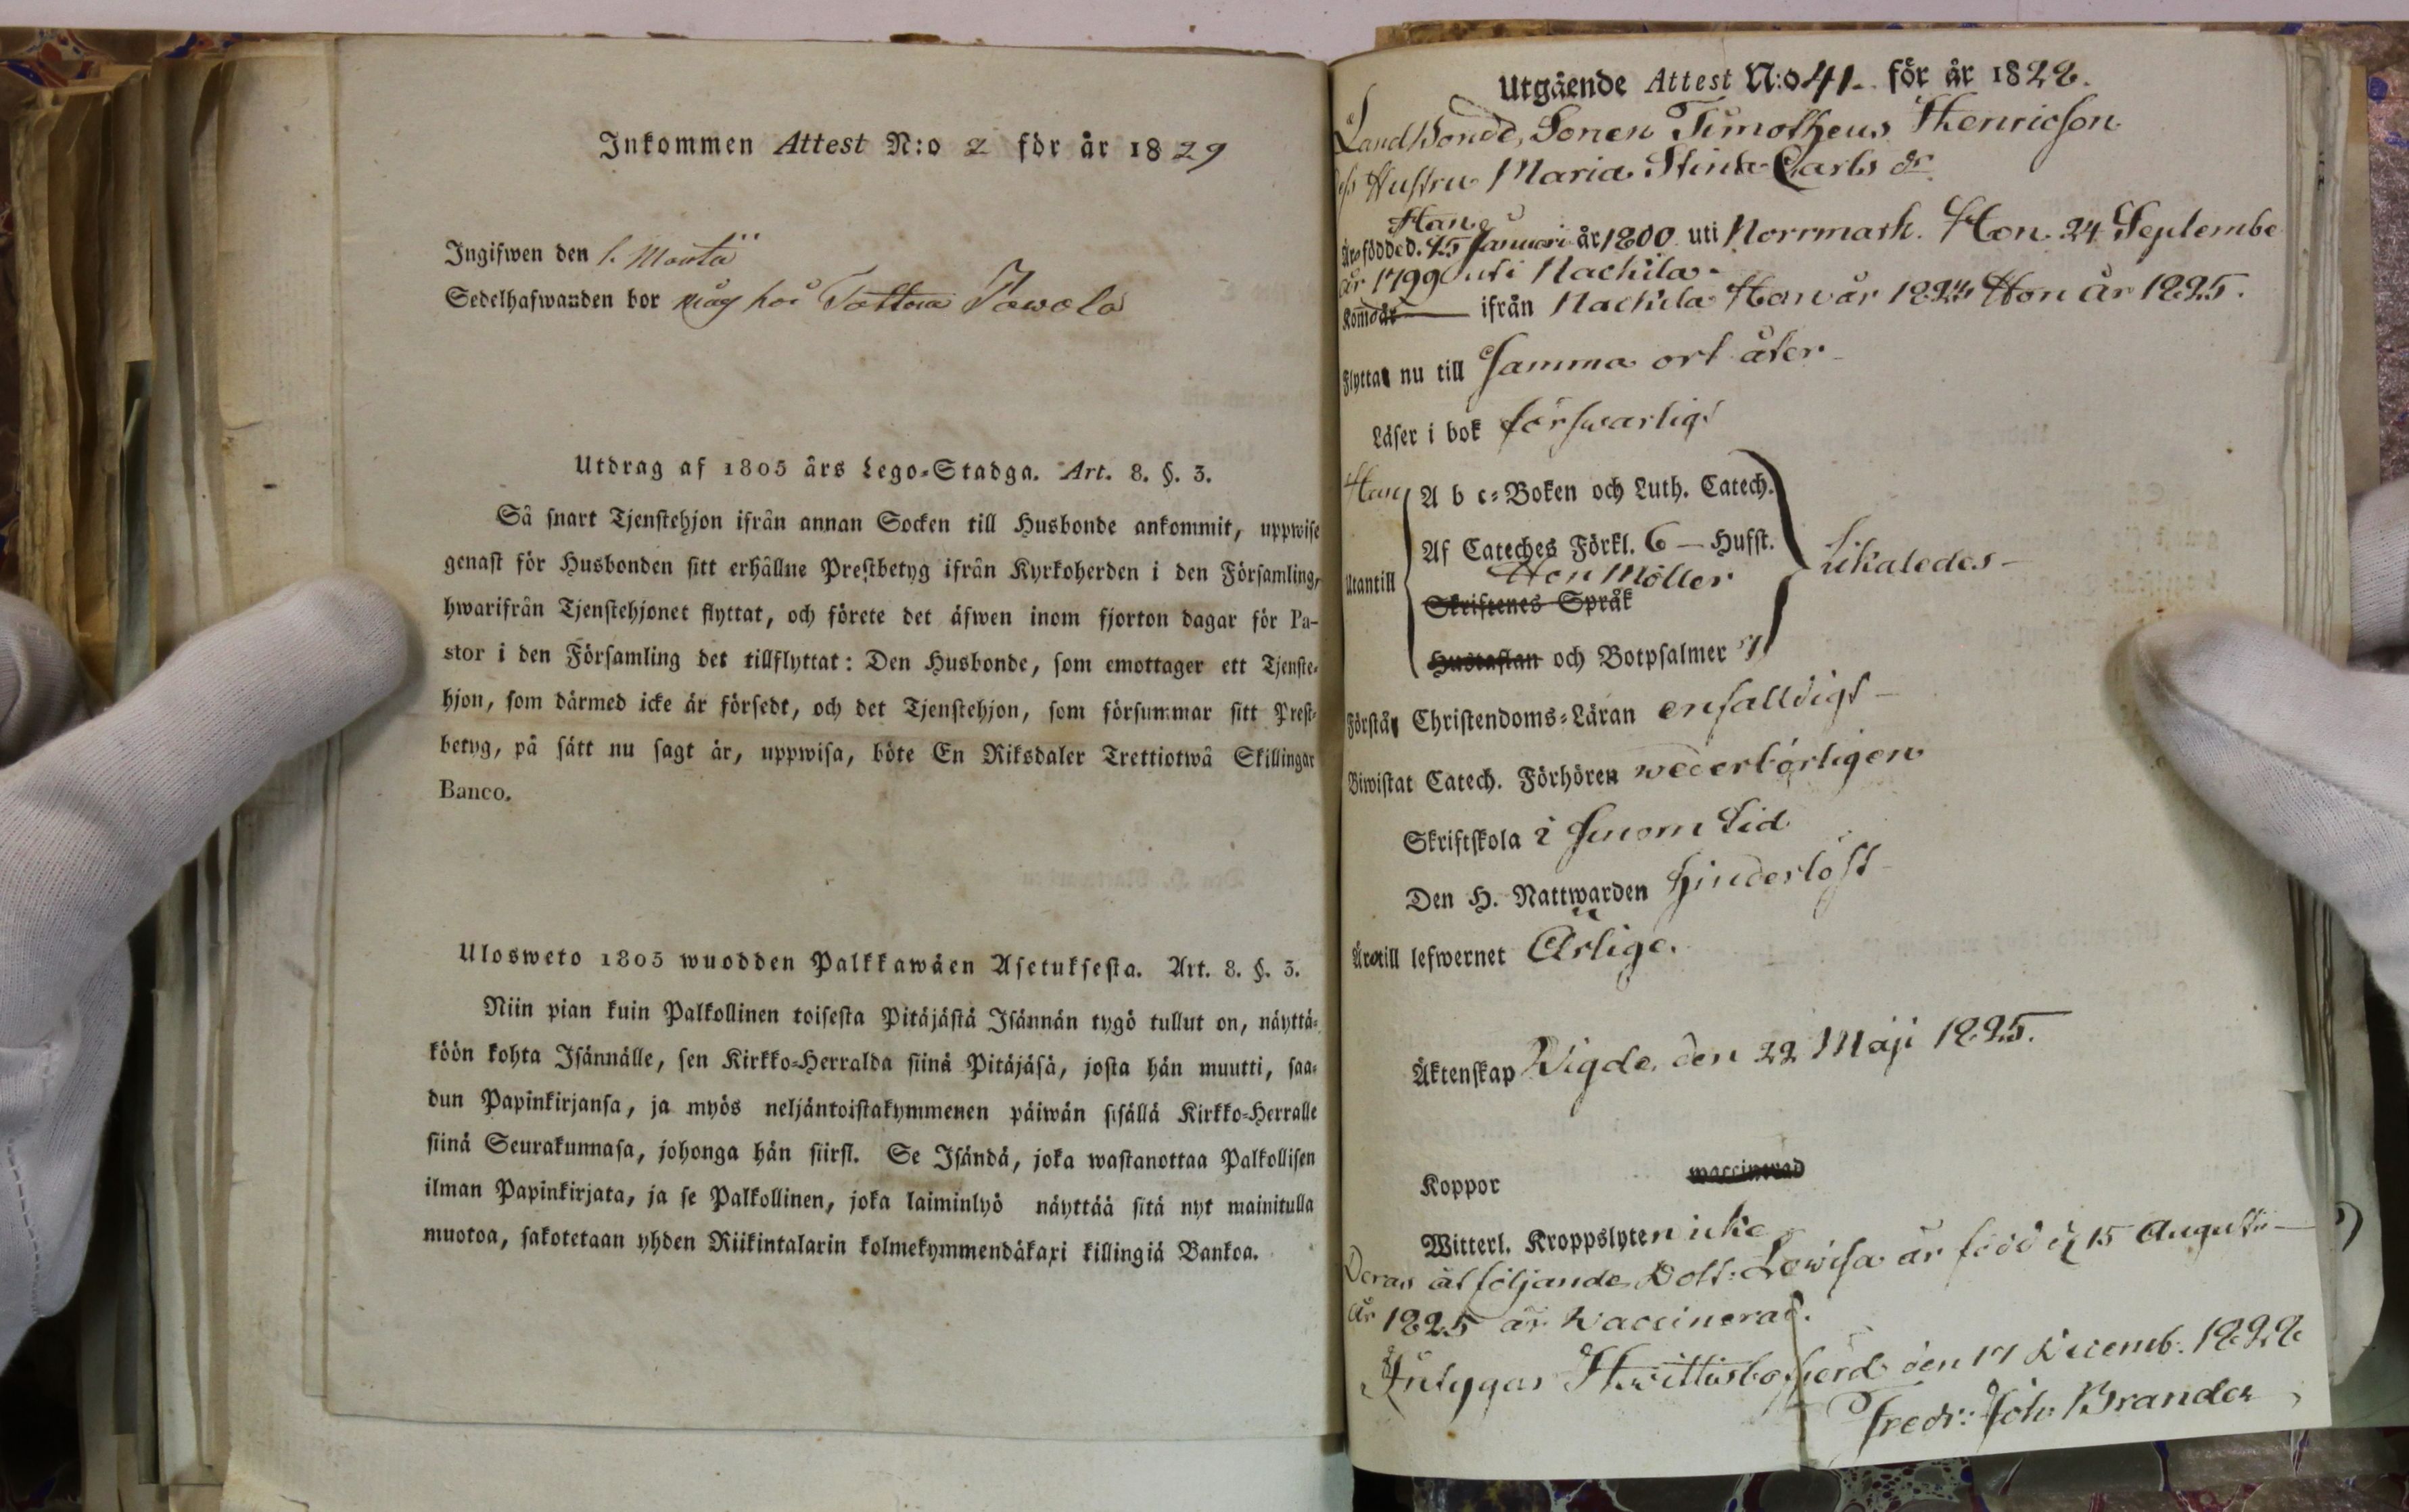 Inkommen Attest N:o 2 för år 1829
Ingifwen den
Sedelhafwanden bor måg hos
Utdrag af 1805 års Lego-Stadga. Art. 8. §. 3.
Så snart Tjenstehjon ifrån annan Socken till Husbonde ankommit, uppwise
genast för Husbonden sitt erhållne Prestbetyg ifrån Kyrkoherden i den Församling,
hwarifrån Tjenstehjonet flyttat, och förete det äfwen inom fjorton dagar för Pa-
stor i den Församling det tillflyttat: Den Husbonde, som emottager ett Tjenste-
hjon, som därmed icke är försedt, och det Tjenstehjon, som försummar sitt Prest-
betyg, på sätt nu sagt är, uppwisa, böte En Riksdaler Trettiotwå Skillingar
Banco.
Ulosweto 1805 wuodden Palkkawäen Asetuksesta. Art. 8. §. 3.
Niin pian kuin Palkollinen toisesta Pitäjästä Isännän tygö tullut on, näyttä-
köön kohta Isännälle, sen Kirkko-Herralda siinä Pitäjäsä, josta hän muutti, saa-
dun Papinkirjansa, ja myös neljäntoistakymmenen päiwän sisällä Kirkko-Herralle
siinä Seurakunnasa, johonga hän siirsi. Se Isändä, joka wastanottaa Palkollisen
ilman Papinkirjata, ja se Palkollinen, joka laiminlyö näyttää sitä nyt mainitulla
muotoa, sakotetaan yhden Riikintalarin kolmekymmendäkaxi killingiä Bankoa.
Utgående Attest N:o 41. för år 1828.
LandBonde, Sonen Timotheus Henricson
Hustru Maria Stina Carls dr
Han
Äro födde d. 15 Januari år 1800 uti Norrmark. Hon 24 Septembe
år 1799 uti Nackila.
Kom år ifrån Nackila Han år 1824 Hon år 1825.
Flyttar nu till samma ort åter
Läser i bok förswarligt
Han
A b c-Boken och Luth. Catech.
Af Cateches Förkl. 6 — Husst.
Hon Möller
Utantill
Likaledes
Skriftenes Språk
Hustaflan och Botpsalmer 7
Förstår Christendoms-Läran enfalldigt
Biwistat Catech. Förhören wederbörligen
Skriftskola i sinom tid
Den H. Nattwarden hinderlöst
Äro till lefwernet Ärlige.
Äktenskap Wigde den 22 Maji 1825.
Koppor waccinerad
Witterl. Kroppslyten icke
Deras åtföljande Dott: Lowisa är född d 15 Augusti
år 1825 är Waccinerad.
Intygas Hwittisbofjerd den 17 Decemb. 1828
Fredr: Joh: Brander